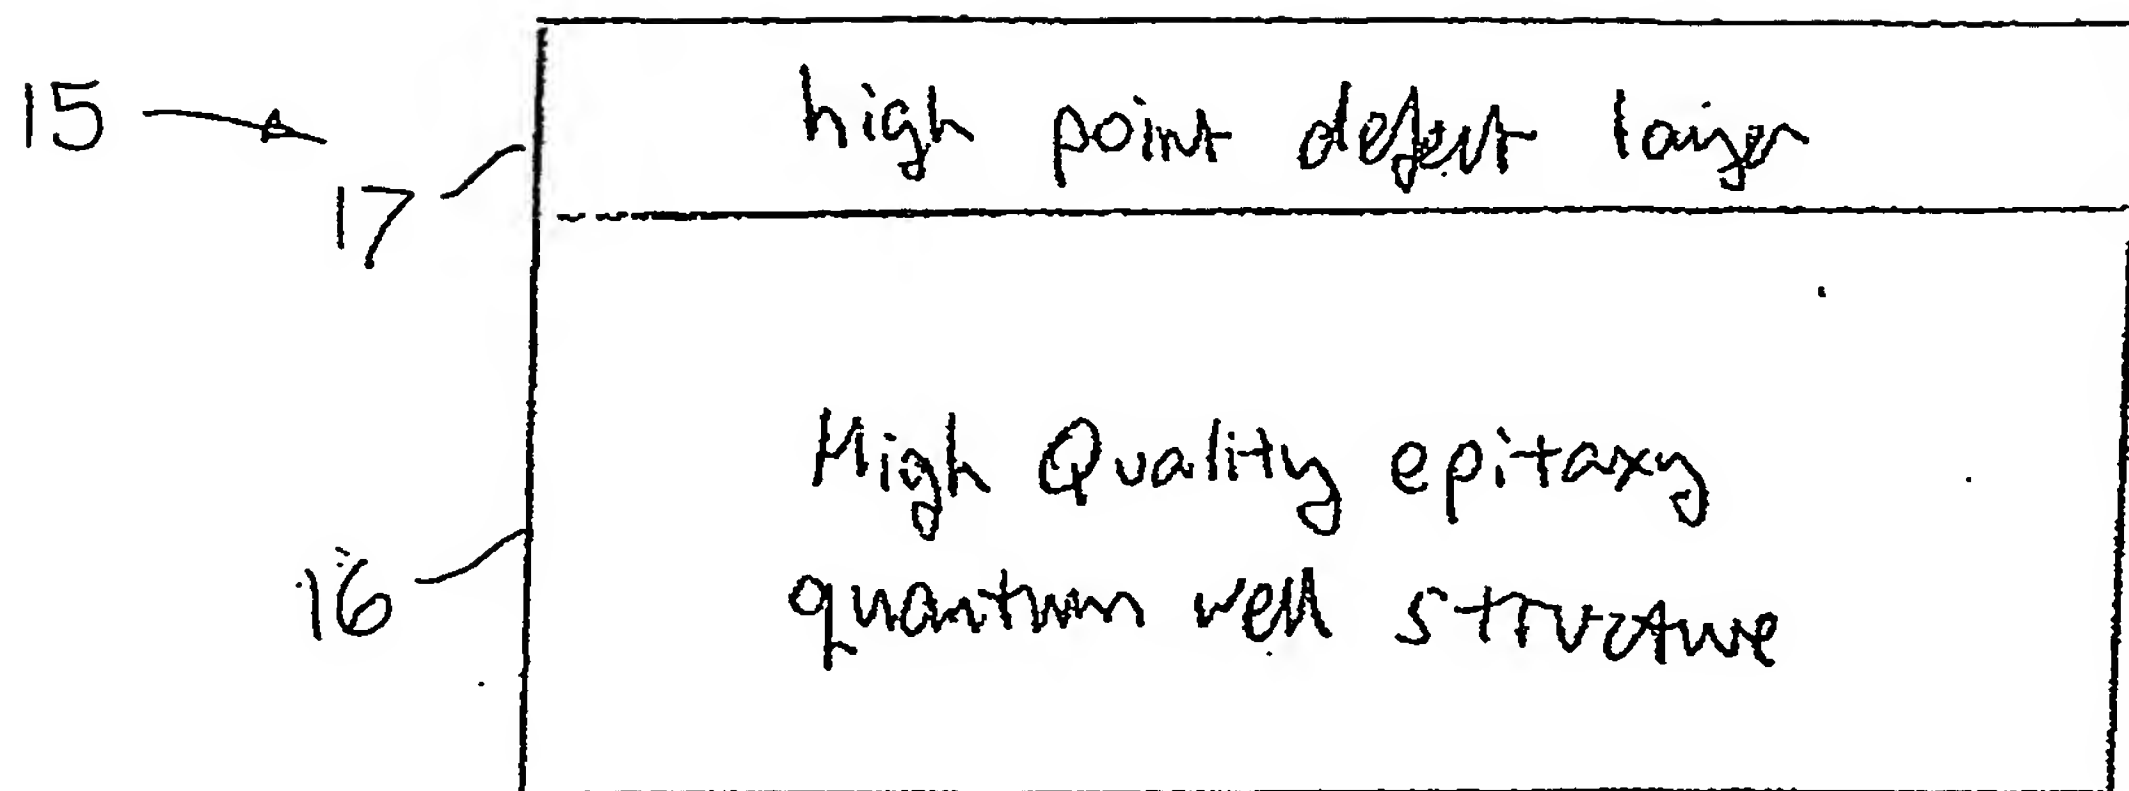 15
high point defect layer
17
High Quality epitaxy
16
quantum well structure